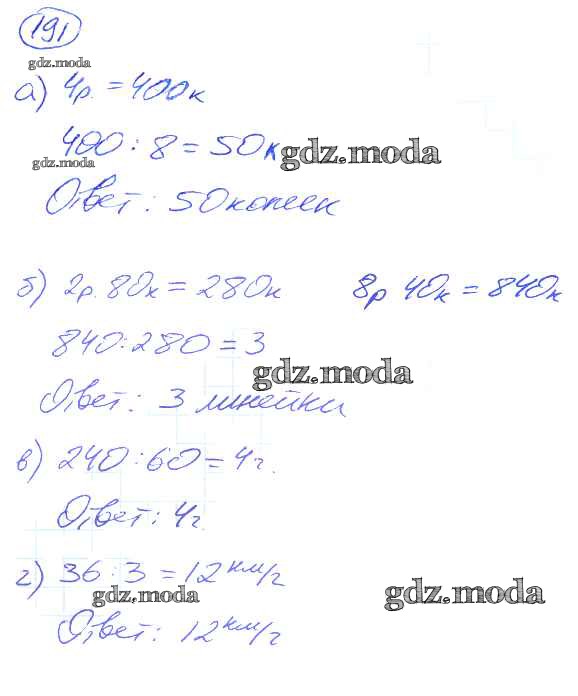 191
gdz.moda
а) 4р. = 400к
400 : 8 = 50к gdz.moda
gdz.moda
Ответ: 50 копеек
б) 2р. 80к = 280к 8р 40к = 840к
840:280 = 3
gdz.moda
Ответ: 3 линейки
в) 240:60 = 4г.
Ответ: 4г.
г) 36:3 = 12 км/г
gdz.moda gdz.moda
Ответ: 12 км/г